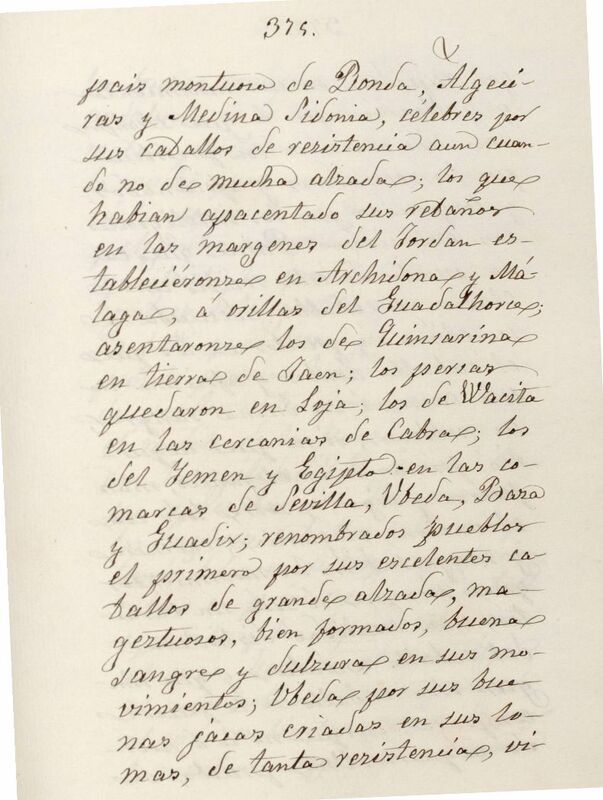 375.
pais montuoso de Ronda, Algeci-
ras y Medina Sidonia, célebres por
sus caballos de rezistencia aun cuan-
do no de mucha alzada; los que
habian apacentado sus rebaños
en las margenes del Jordan es-
tableciéronze en Archidona y Má-
laga, á orillas del Guadalhorce;
asentaronze los de Quinsarina
en tierra de Jaen; los persas
quedaron en Loja; los de Wacita
en las cercanias de Cabra; los
del Yemen y Egipto en las co-
marcas de Sevilla, Ubeda, Baza
y Guadix; renombrados pueblos
el primero por sus escelentes ca-
ballos de grande alzada, ma-
gestuosos, bien formados, buena
sangre y dulzura en sus mo-
vimientos; Ubeda por sus bue-
nas jacas criadas en sus lo-
mas, de tanta rezistencia, vi-